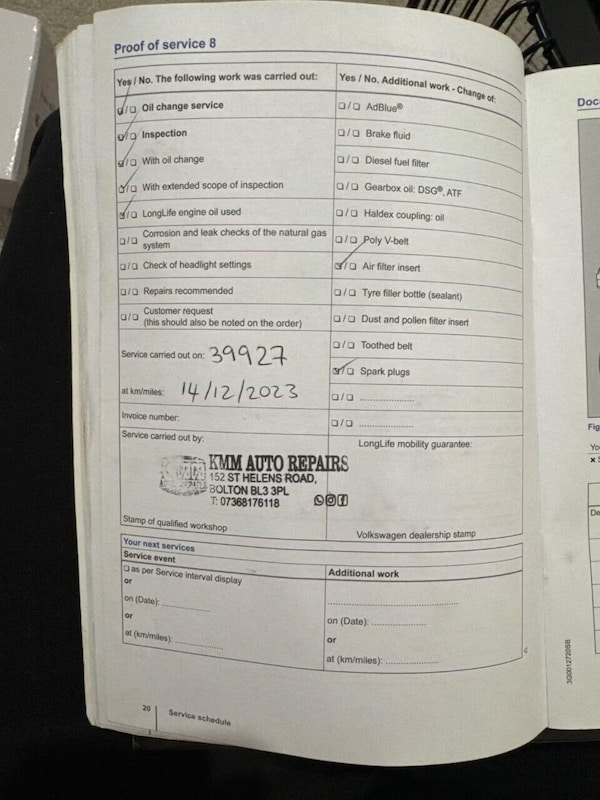 Proof of service 8
Yes / No. The following work was carried out:
☑/☐ Oil change service
☑/☐ Inspection
☑/☐ With oil change
☑/☐ With extended scope of inspection
☑/☐ LongLife engine oil used
☐/☐ Corrosion and leak checks of the natural gas
system
☐/☐ Check of headlight settings
☐/☐ Repairs recommended
☐/☐ Customer request
(this should also be noted on the order)
Service carried out on: 39927
at km/miles: 14/12/2023
Invoice number:
Service carried out by:
KMM AUTO REPAIRS
152 ST HELENS ROAD,
BOLTON BL3 3PL
T: 07368176118
Stamp of qualified workshop
Yes / No. Additional work - Change of:
☐/☐ AdBlue®
☐/☐ Brake fluid
☐/☐ Diesel fuel filter
☐/☐ Gearbox oil: DSG®, ATF
☐/☐ Haldex coupling: oil
☐/☐ Poly V-belt
☑/☐ Air filter insert
☐/☐ Tyre filler bottle (sealant)
☐/☐ Dust and pollen filter insert
☐/☐ Toothed belt
☑/☐ Spark plugs
☐/☐ ....................
☐/☐ ....................
LongLife mobility guarantee:
Volkswagen dealership stamp
Your next services
Service event
☐ as per Service interval display
or
on (Date): ....................
or
at (km/miles): ....................
Additional work
....................
on (Date): ....................
or
at (km/miles): ....................
20 Service schedule
Doc
Fig
Yo
De
3G0012720SB